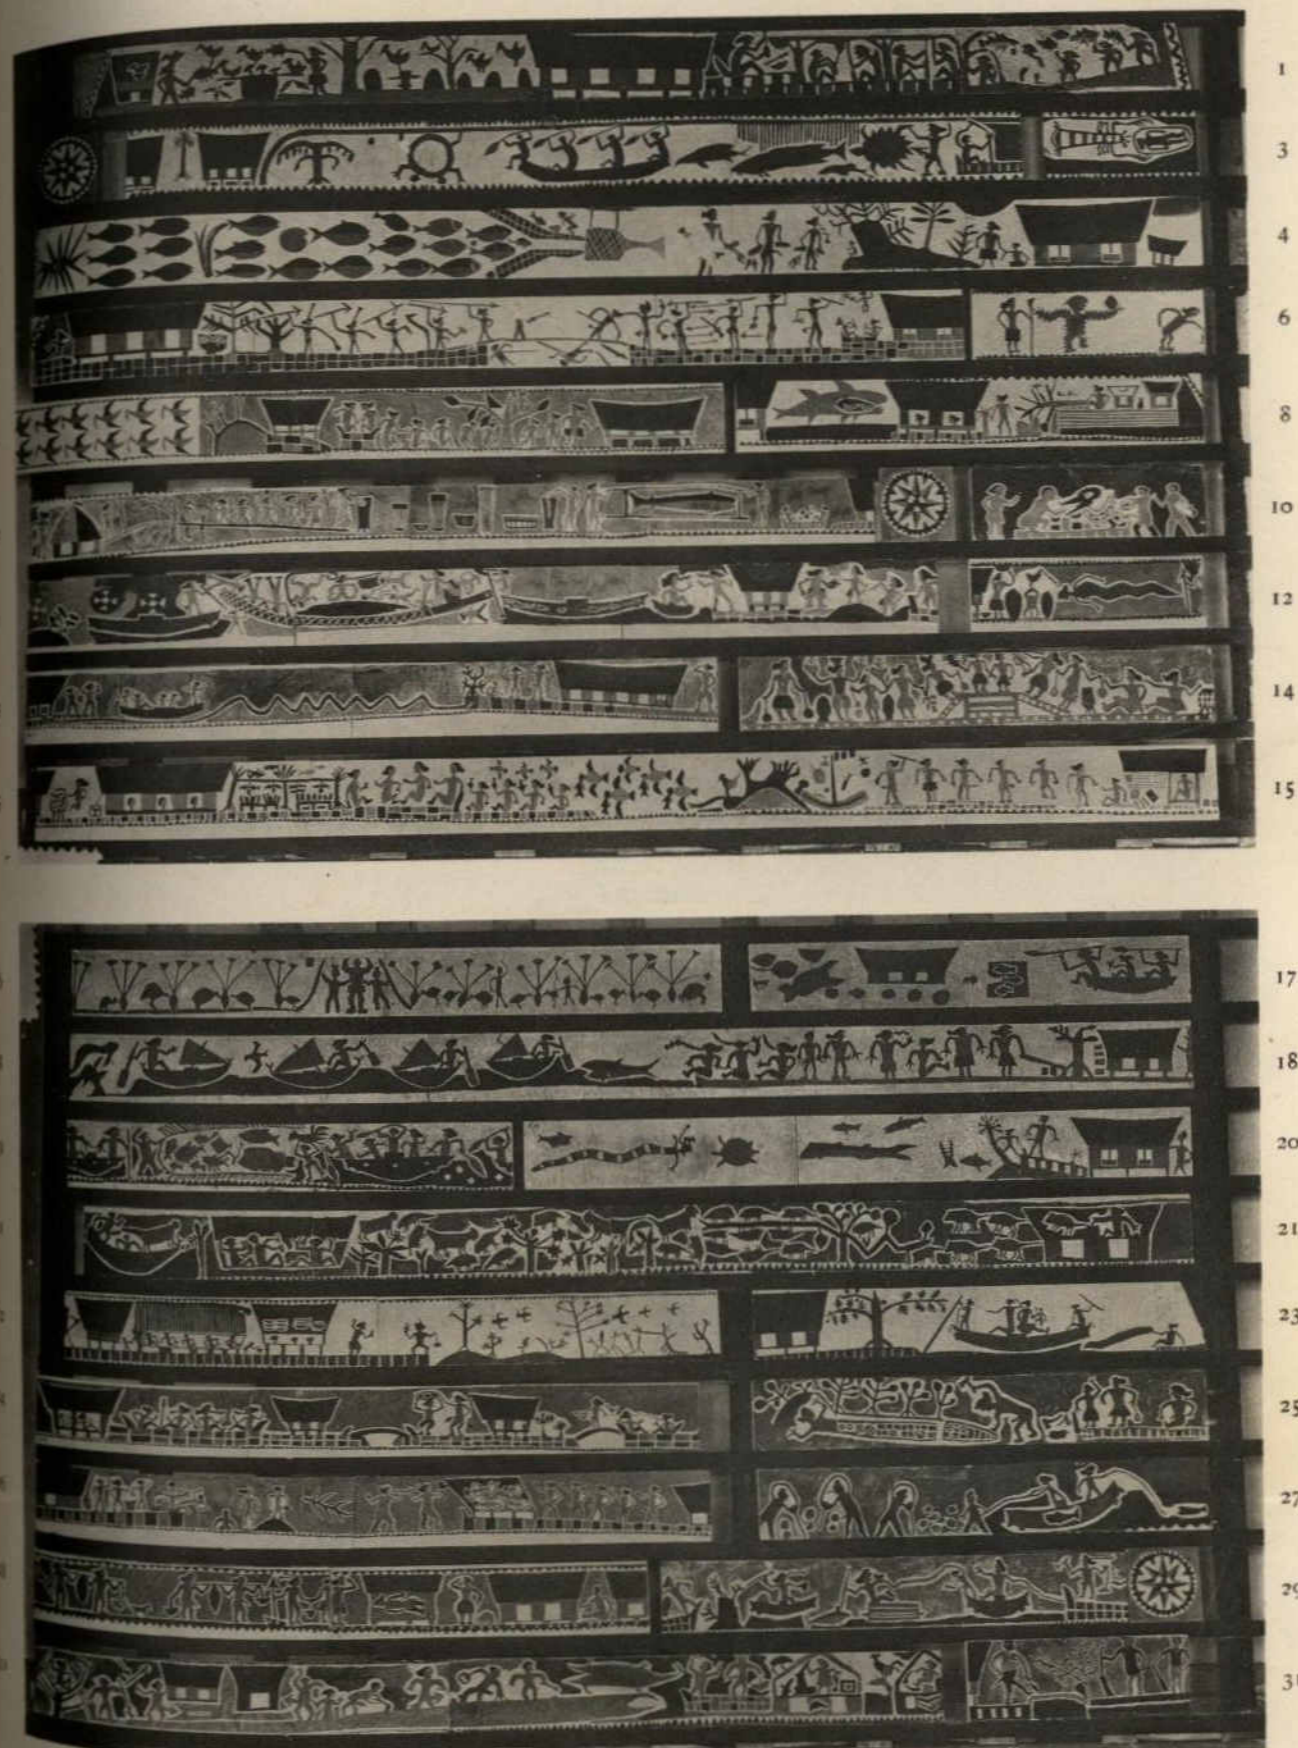 1
3
4
6
8
10
12
14
15
17
18
20
21
23
25
27
29